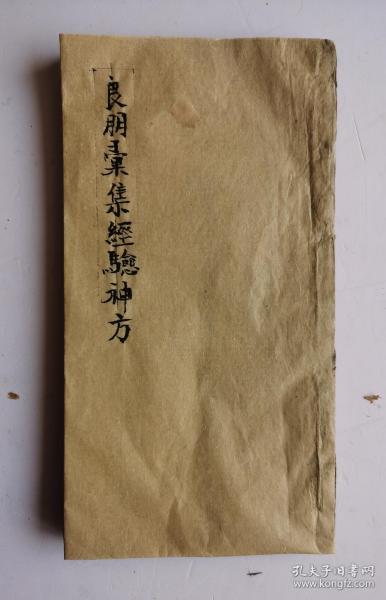 良朋彙集經驗神方
孔夫子旧书网
www.kongfz.com